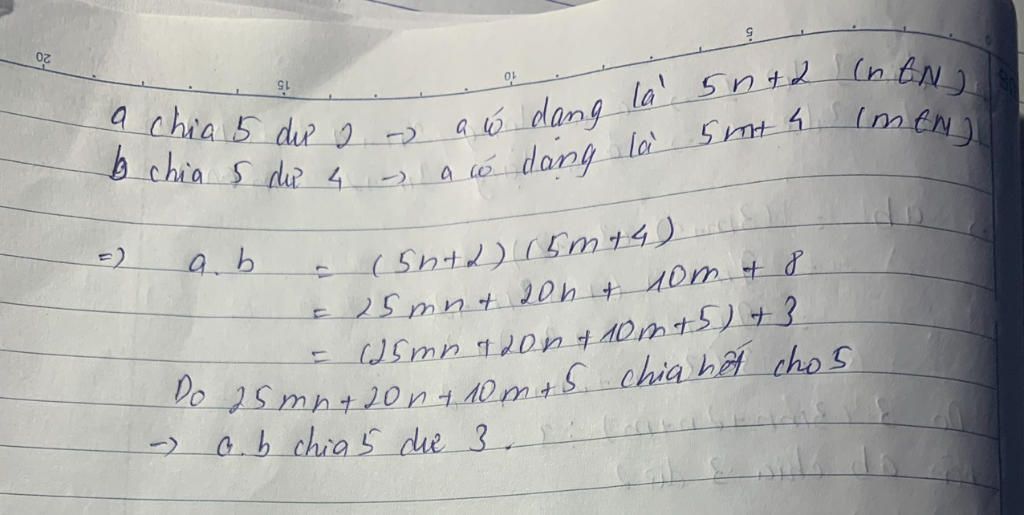 20 15 10 5
a chia 5 dư 2 → a có dạng là 5n+2 (n∈N)
b chia 5 dư 4 → a có dạng là 5m+4 (m∈N)
=) a.b = (5n+2)(5m+4)
= 25mn + 20n + 10m + 8
= (25mn+20n+10m+5)+3
Do 25mn+20n+10m+5 chia hết cho 5
→ a.b chia 5 dư 3.